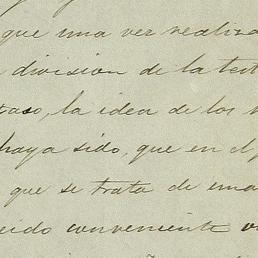 que una vez realiza
division de la test
paso, la idea de los
haya sido, que en el
que se trata de ena
cido conveniente